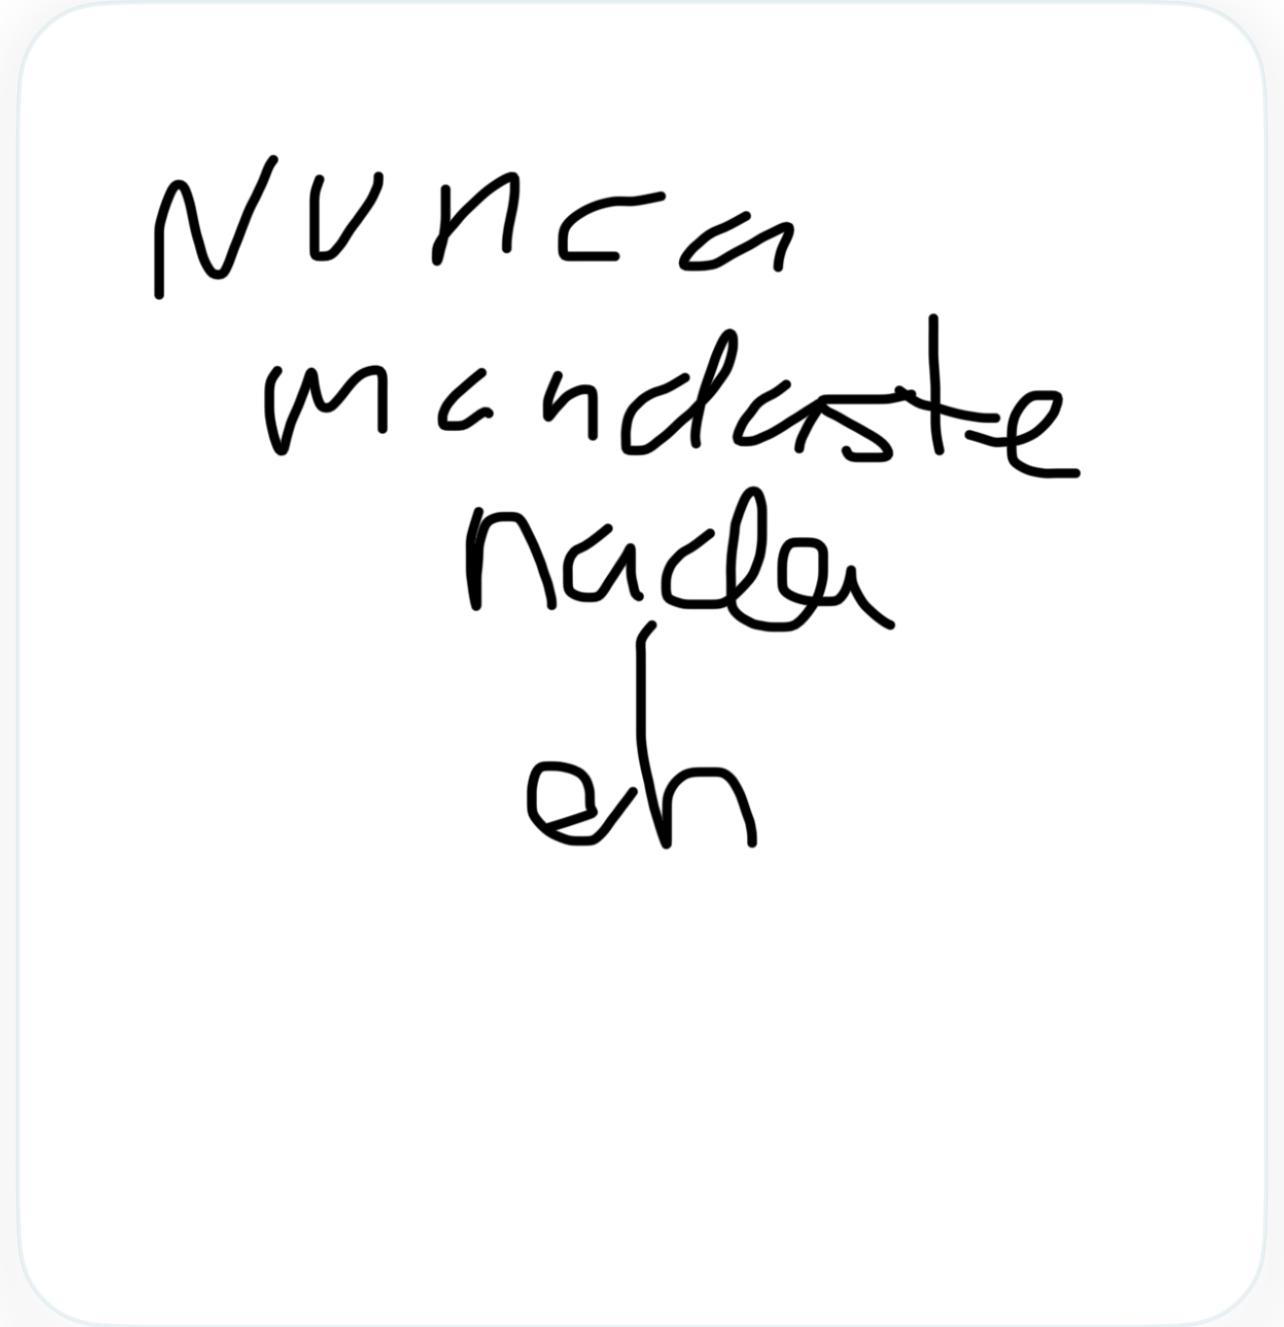 Nunca
mandaste
nada
eh